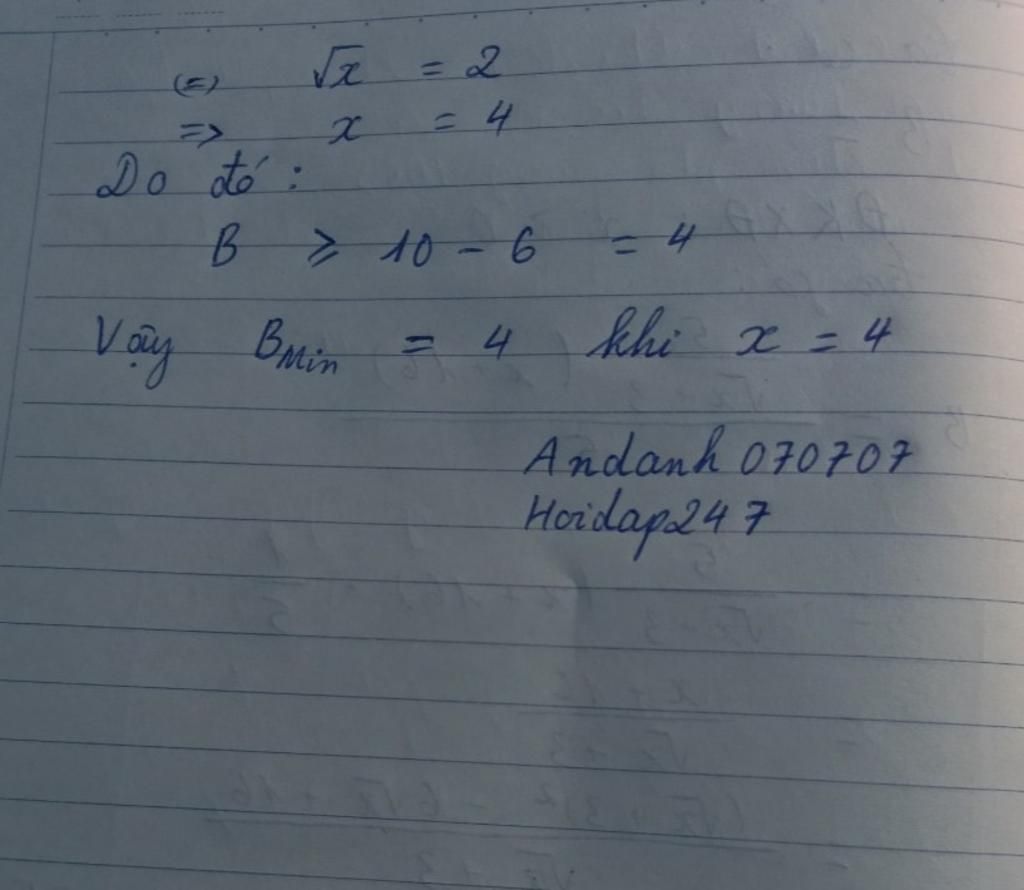 (=) √x = 2
=> x = 4
Do đó :
B ≥ 10 - 6 = 4
Vậy BMin = 4 khi x = 4
Andanh 070707
Hoidap247